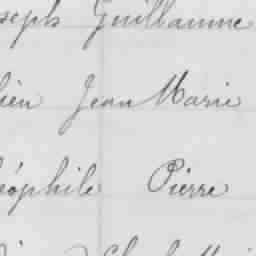 seph Guillaume
lien Jean Marie
éophile Pierre